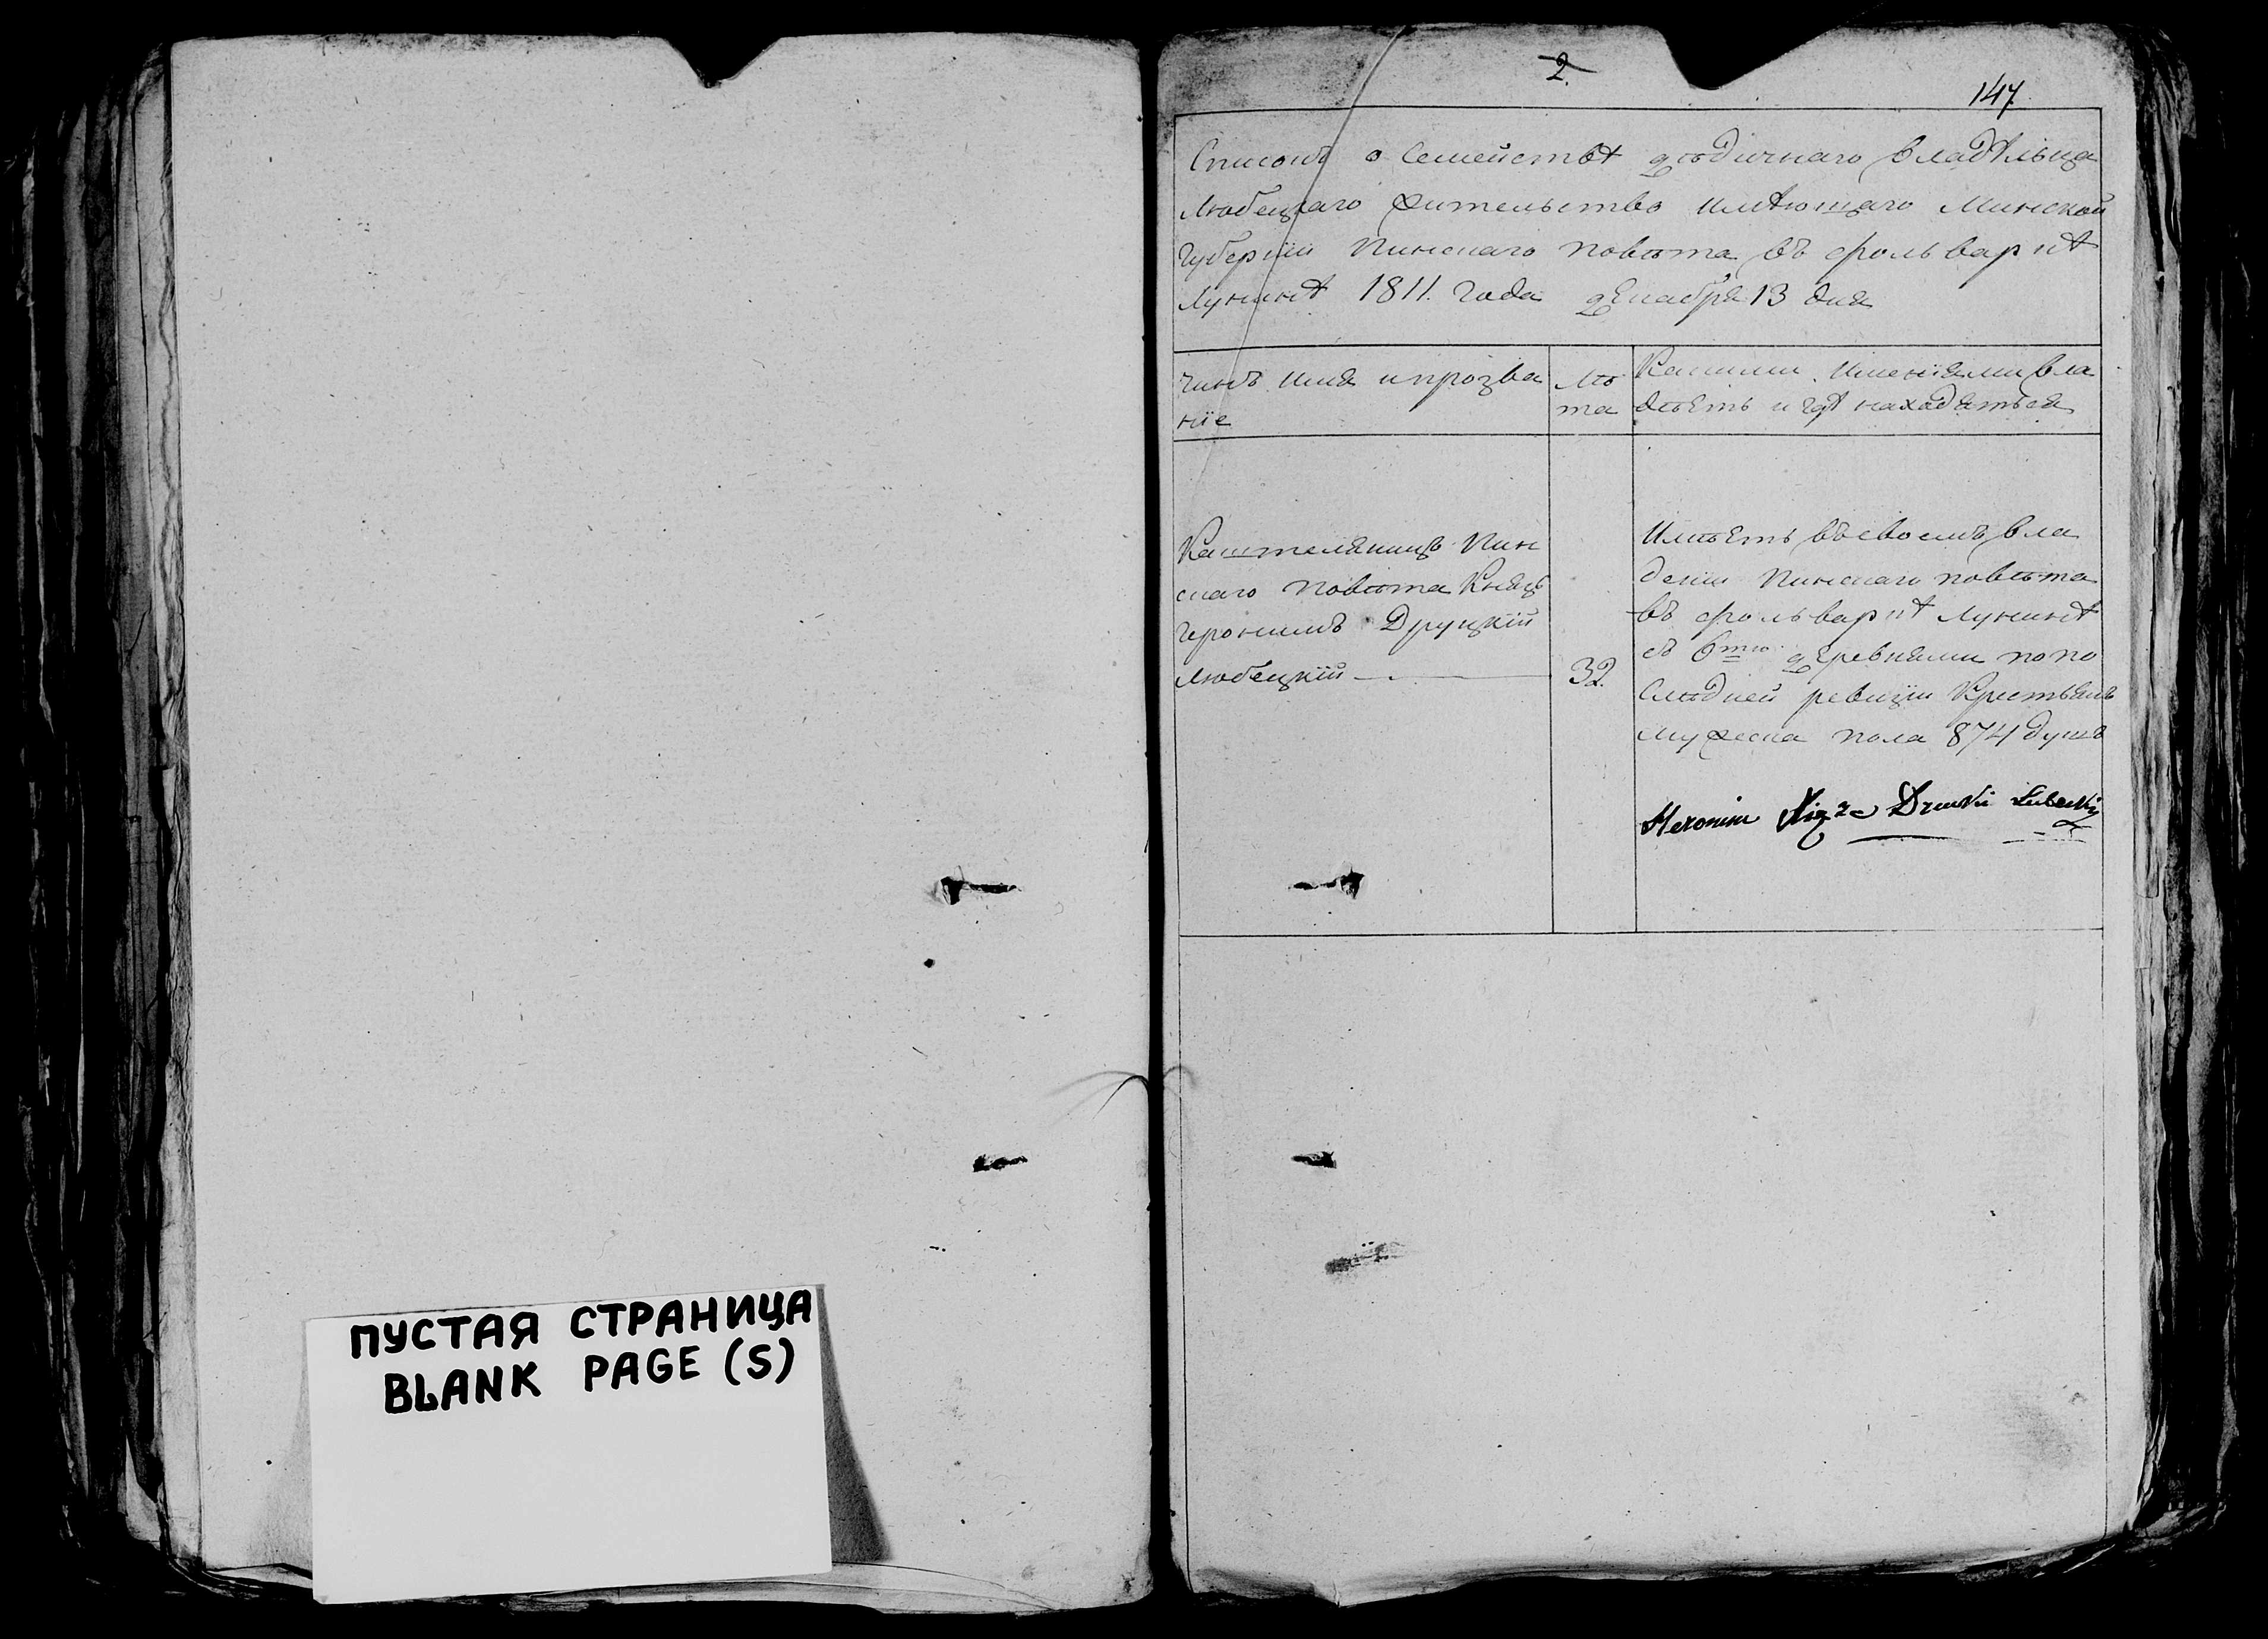 ПУСТАЯ СТРАНИЦА
BLANK PAGE (S)
2
147
Списокъ о Семействѣ дѣдичнаго владѣльца
Любецкаго жительство имѣющаго Минской
Губернїи Пинскаго повѣта въ фольваркѣ
Лунинѣ 1811. Года декабря 13 дня
Чинъ Имя и прозва
нїе
Лѣ
та
Какими Именїями вла
дѣетъ и гдѣ находяться
Каштеляницъ Пин
скаго повѣта Князь
Геронимъ Друцкїй
Любецкїй
32.
Имѣетъ въ своемъ вла
денїи Пинскаго повѣта
въ фольваркѣ Лунинѣ
съ 6тю деревнями по по
слѣдней ревизїи Крестьянъ
мужеска пола 874 душъ
Heronim Xiąże Drucki Lubecki